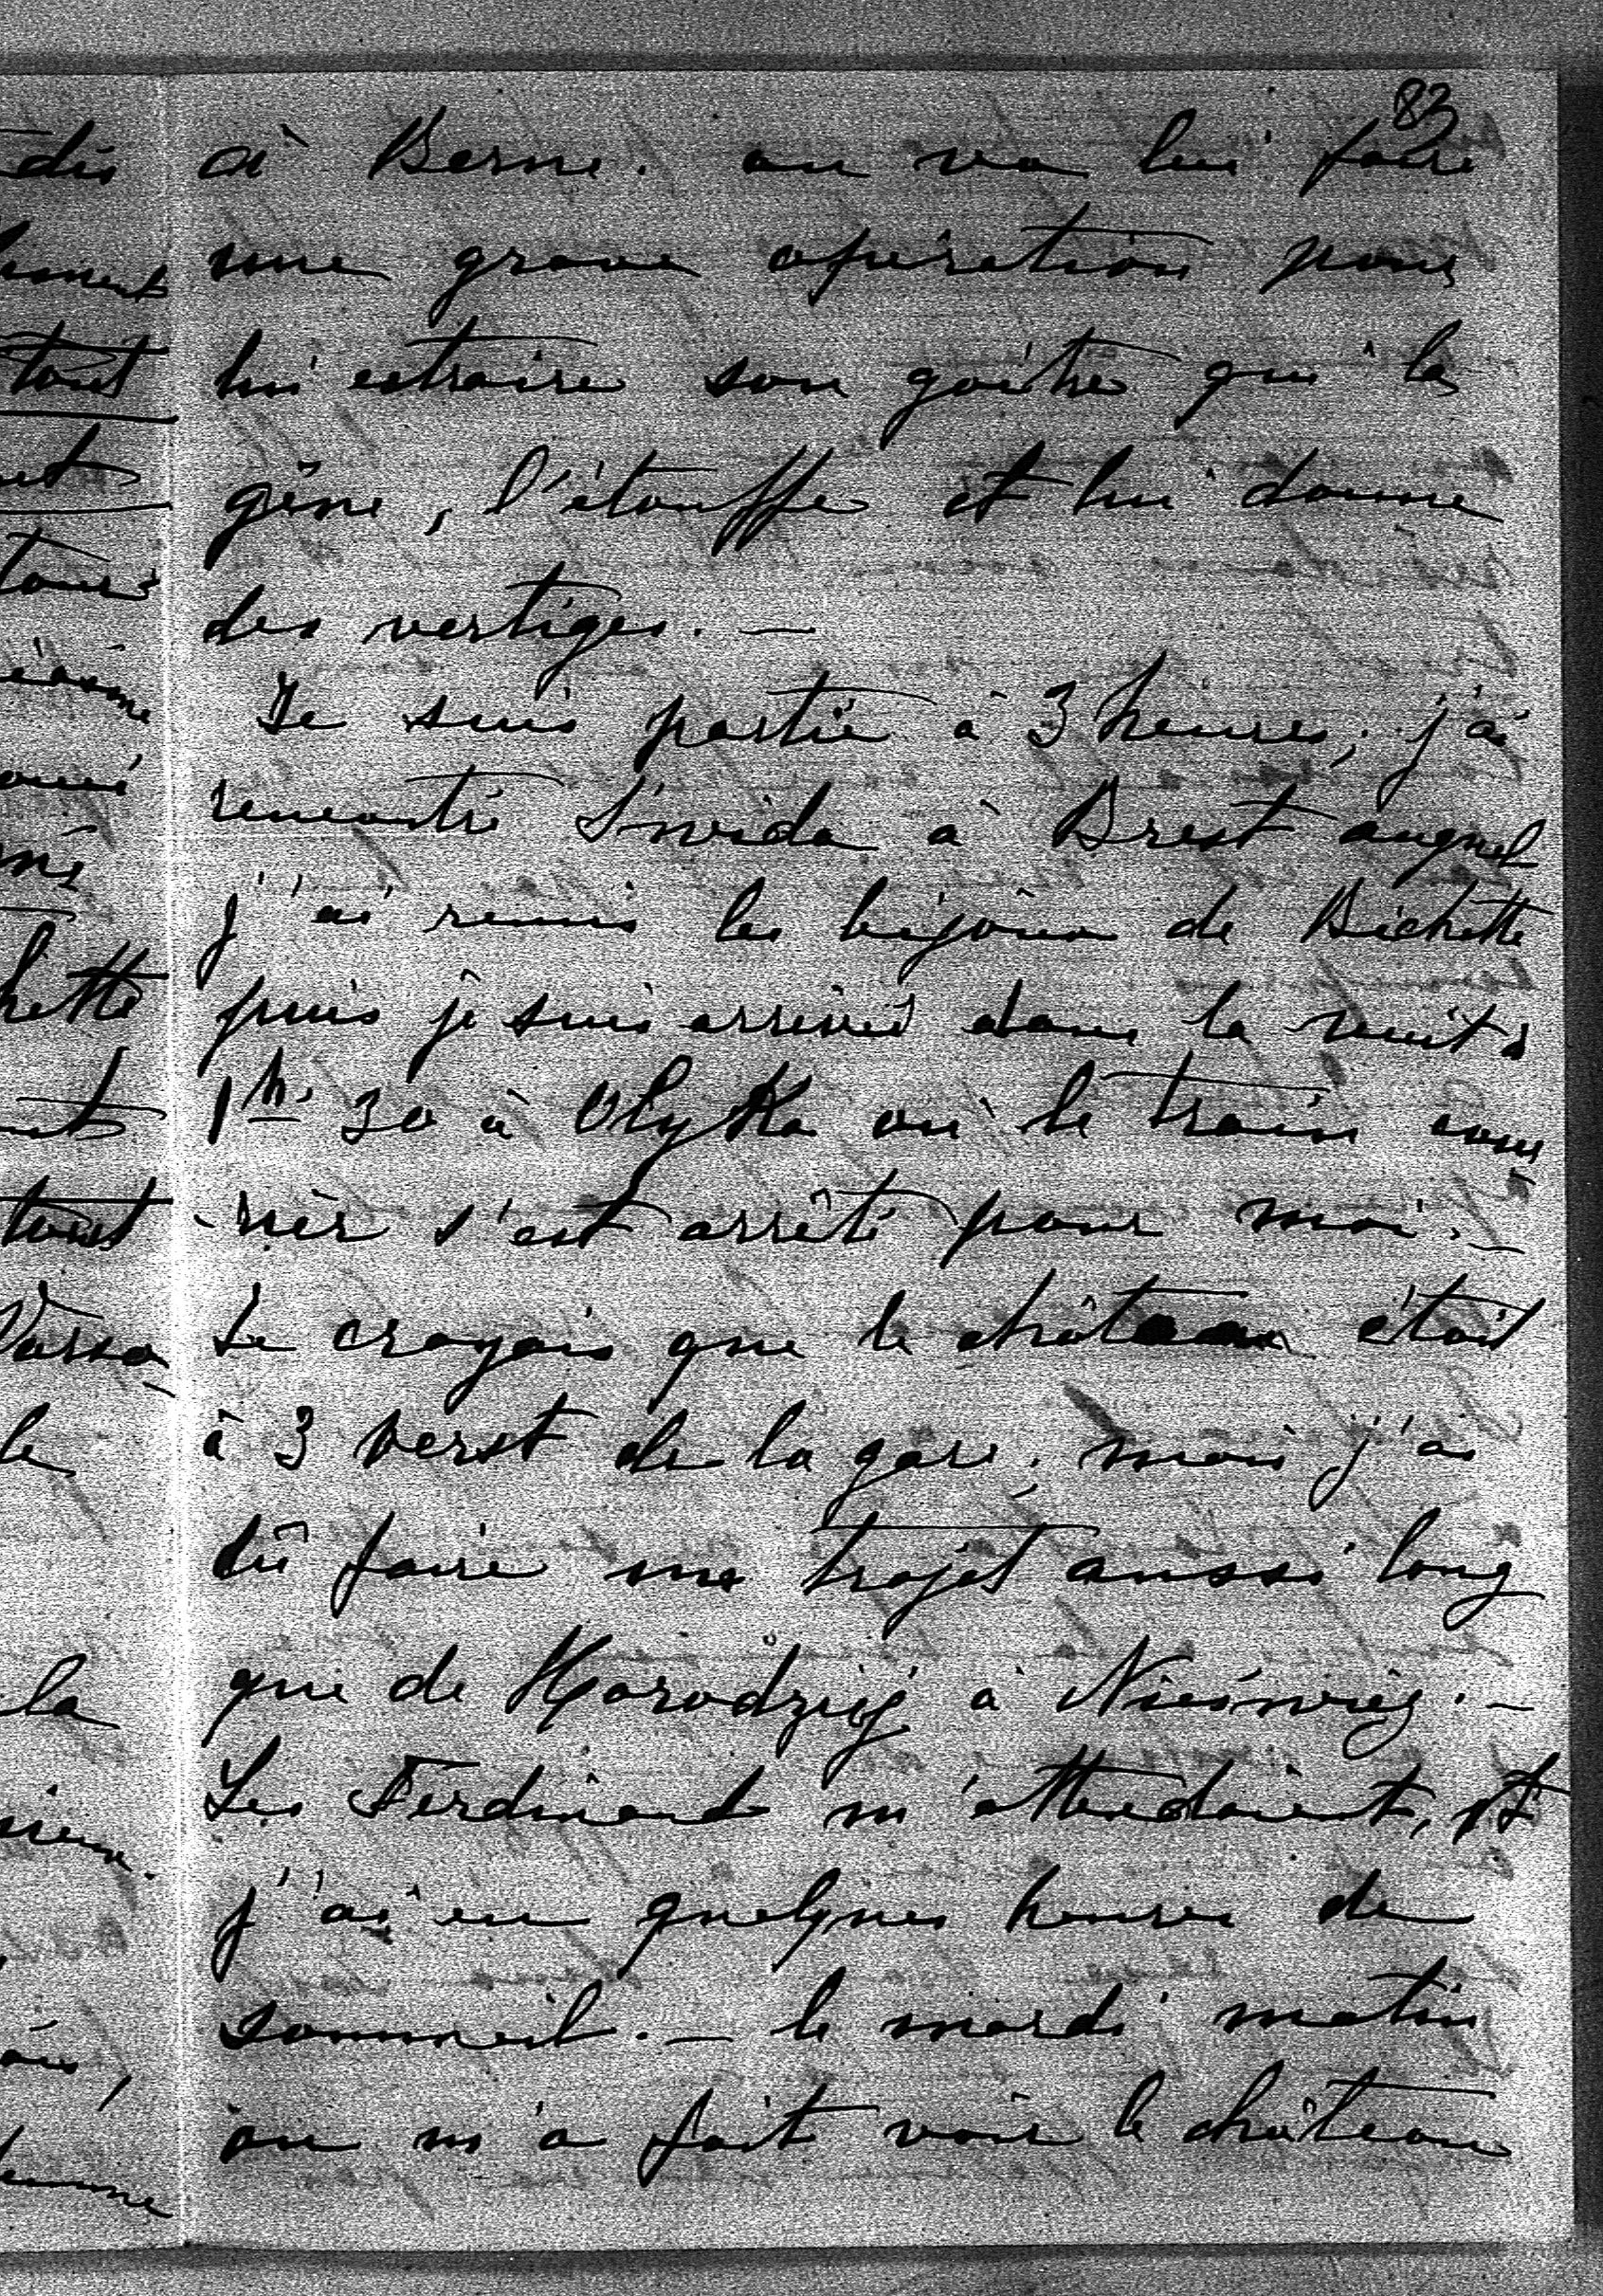 83
à Berne. on va lui faire
une grave opération pour
lui extraire son goître qui la
gêne, l'étouffe et lui donne
des vertiges. —
Je suis partie à 3 heures, j'ai
rencontré à Brest auquel
j'ai remis les bijoux de Bichette
puis je suis arrivée dans la nuit à
1h. 30 à Olyka où le train cour
-rier s'est arrêté pour moi. —
Je croyais que le château était
à 3 verst de la gare, mais j'ai
dû faire un trajet aussi long
que de Horodziej à Nieśwież. —
Les Ferdinand m'attendaient, et
j'ai eu quelques heures de
sommeil. — le mardi matin
on m'a fait voir le château